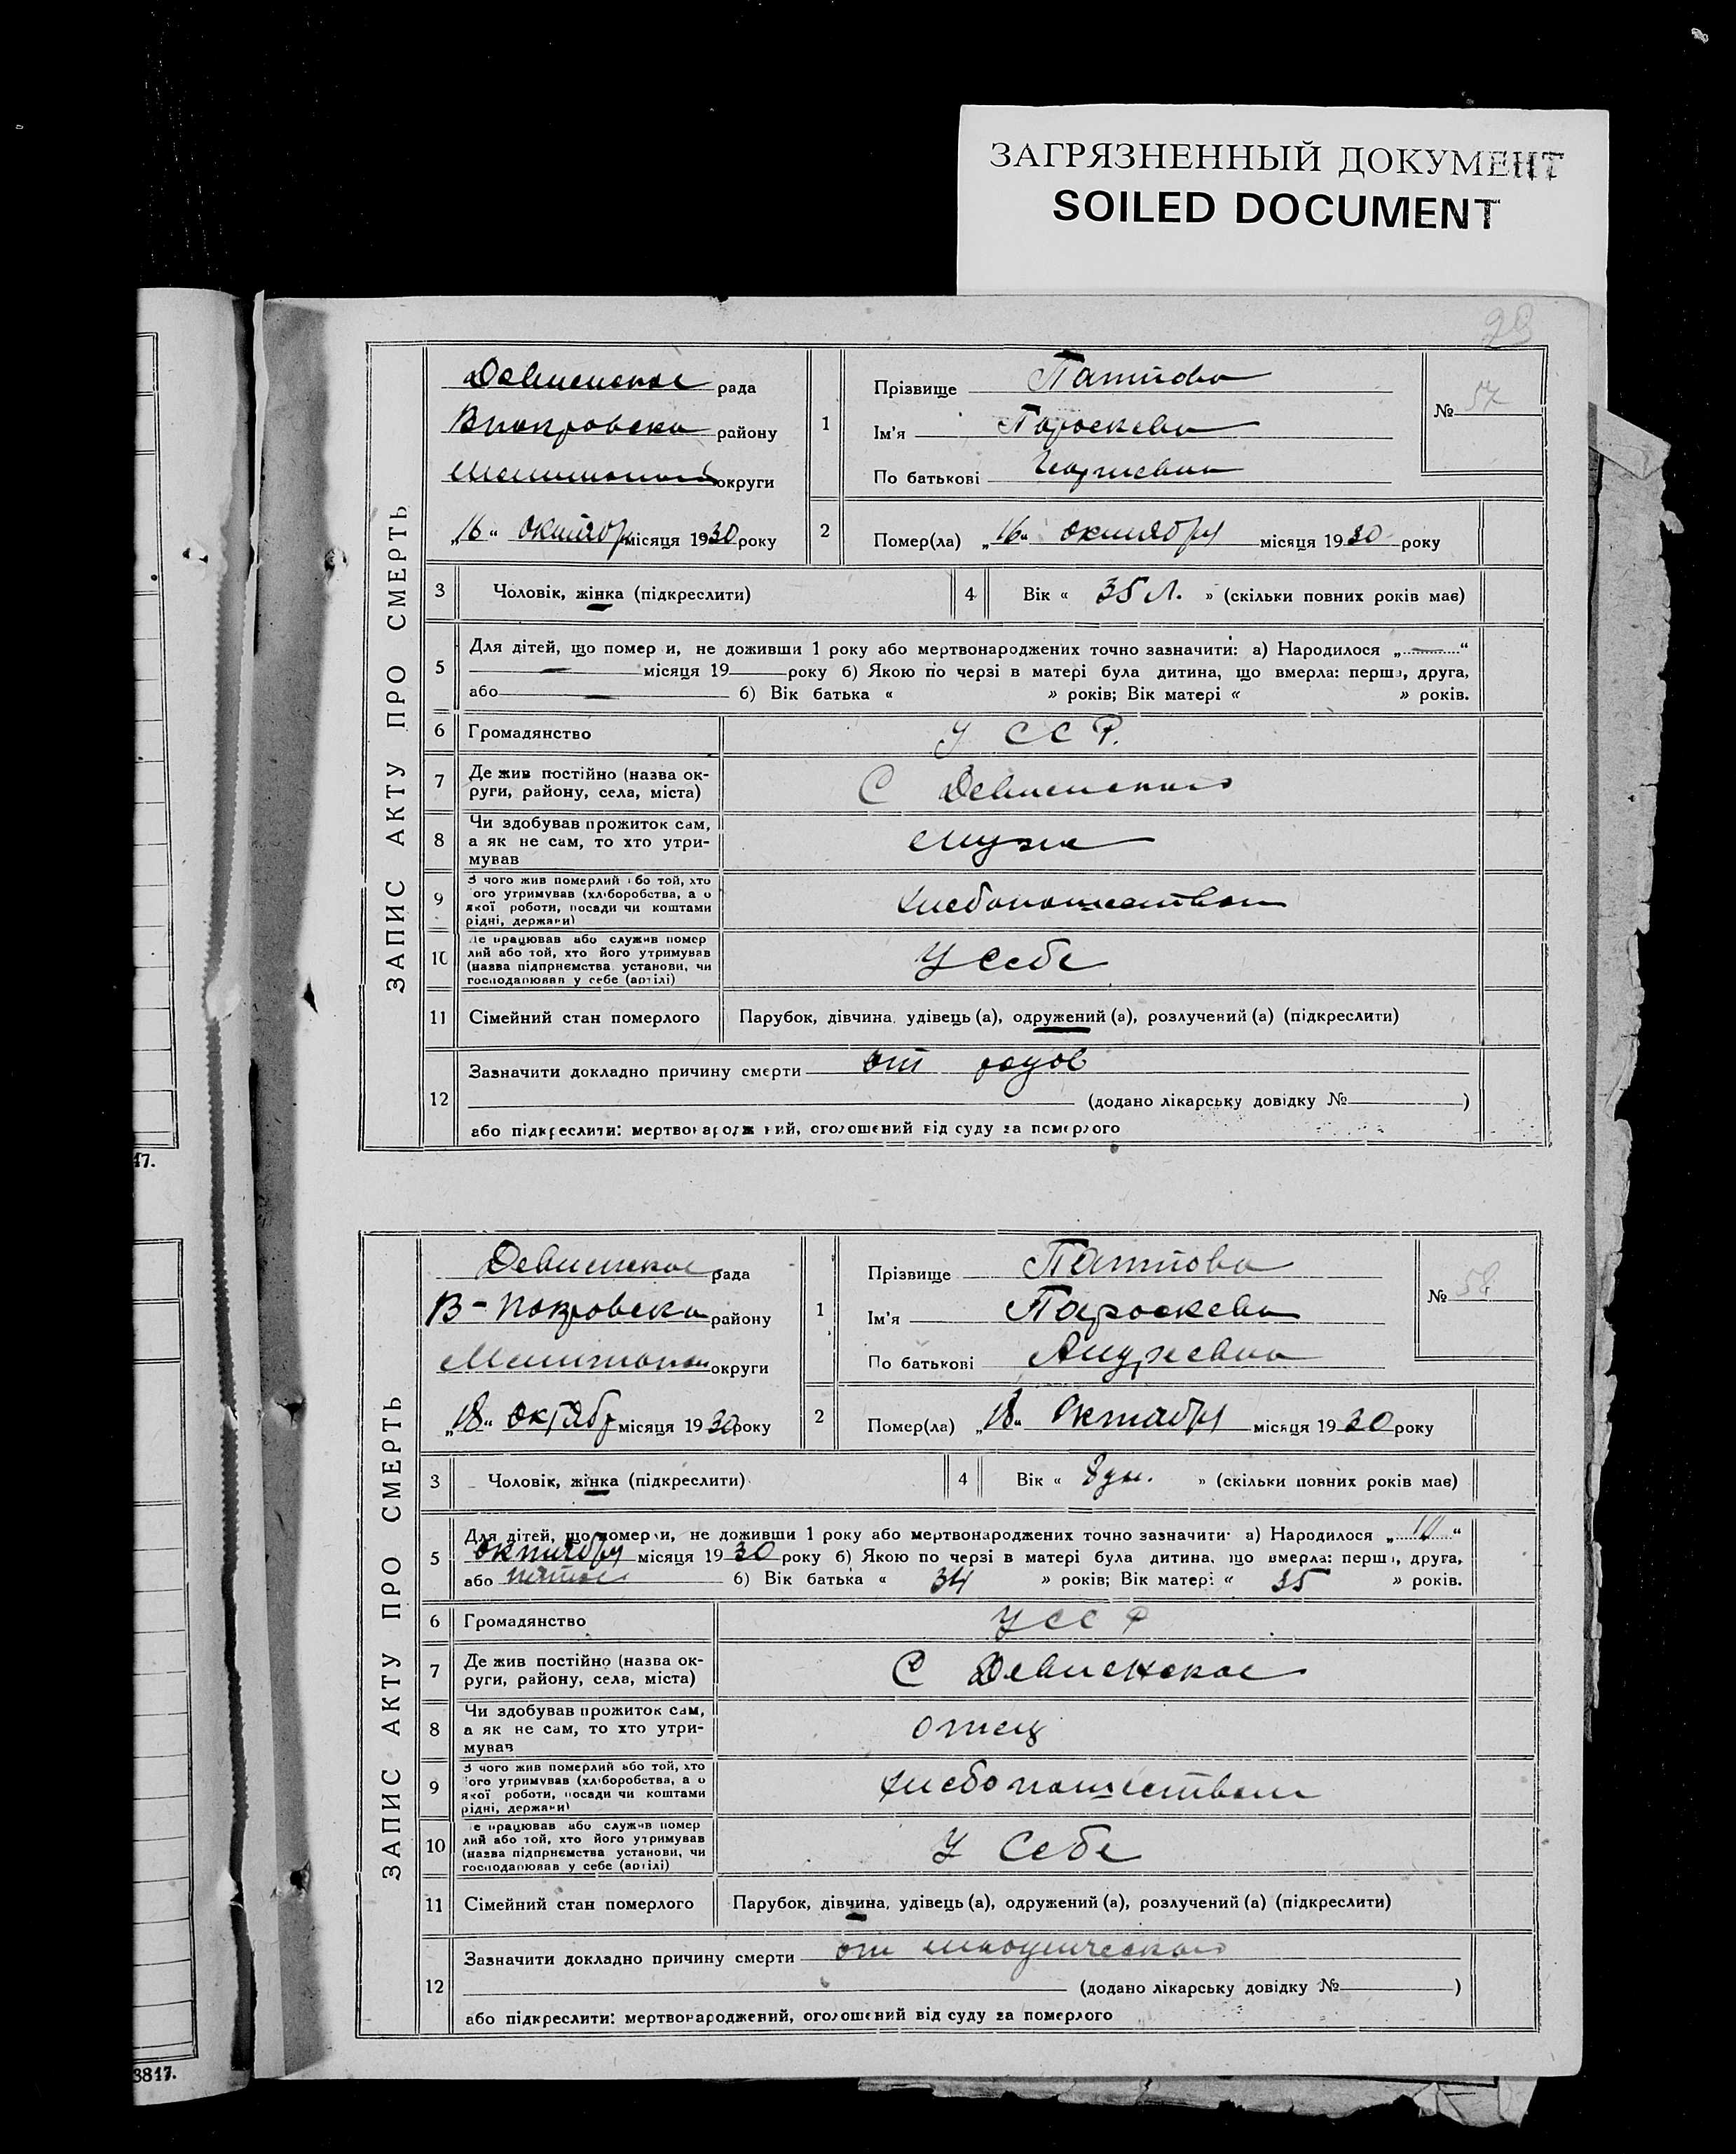 ЗАГРЯЗНЕННЫЙ ДОКУМЕНТ
SOILED DOCUMENT
ЗАПИС АКТУ ПРО СМЕРТЬ
Девненское рада
района
округи
„16“ октябр місяця 1930 року
1
Прізвище
Ім'я Пароскева
По батькові Георгиевна
№ 57
2
Помер(ла) „16“ октября місяця 1930 року
3 Чоловік, жінка (підкреслити)
4 Вік « 35 л. » (скільки повних років має)
5 Для дітей, що померли, не доживши 1 року або мертвонароджених точно зазначити: а) Народилося „ “
місяця 19 року б) Якою по черзі в матері була дитина, що вмерла: перша, друга,
або б) Вік батька « » років; Вік матері « » років.
6 Громадянство У С С Р.
7 Де жив постійно (назва округи, району, села, міста) С
8 Чи здобував прожиток сам, а як не сам, то хто утримував мужа
9 З чого жив померлий або той, хто його утримував (хліборобства, а о якої роботи, посади чи коштами рідні, держави) хлебопашеством
10 Де працював або служив померлий або той, хто його утримував (назва підприємства, установи, чи господарював у себе (артілі) У себе
11 Сімейний стан померлого Парубок, дівчина, удівець (а), одружений (а), розлучений (а) (підкреслити)
12 Зазначити докладно причину смерти от родов
(додано лікарську довідку № )
або підкреслити: мертвонароджений, оголошений від суду за померлого
17.
ЗАПИС АКТУ ПРО СМЕРТЬ
Девненское рада
В-Покровска району
округи
„18“ октябр місяця 1930 року
1
Прізвище
Ім'я Пароскева
По батькові Андреевна
№ 58
2
Помер(ла) „18“ Октября місяця 1930 року
3 Чоловік, жінка (підкреслити)
4 Вік « 8 дн. » (скільки повних років має)
5 Для дітей, що померли, не доживши 1 року або мертвонароджених точно зазначити: а) Народилося „10“
октября місяця 1930 року б) Якою по черзі в матері була дитина, що вмерла: перша, друга,
або б) Вік батька « 34 » років; Вік матері « 35 » років.
6 Громадянство УССР
7 Де жив постійно (назва округи, району, села, міста) С Девненское
8 Чи здобував прожиток сам, а як не сам, то хто утримував отец
9 З чого жив померлий або той, хто його утримував (хліборобства, а о якої роботи, посади чи коштами рідні, держави) хлебопашеством
10 Де працював або служив померлий або той, хто його утримував (назва підприємства установи, чи господарював у себе (артілі) У себе
11 Сімейний стан померлого Парубок, дівчина, удівець (а), одружений (а), розлучений (а) (підкреслити)
12 Зазначити докладно причину смерти от
(додано лікарську довідку № )
або підкреслити: мертвонароджений, оголошений від суду за померлого
3817.